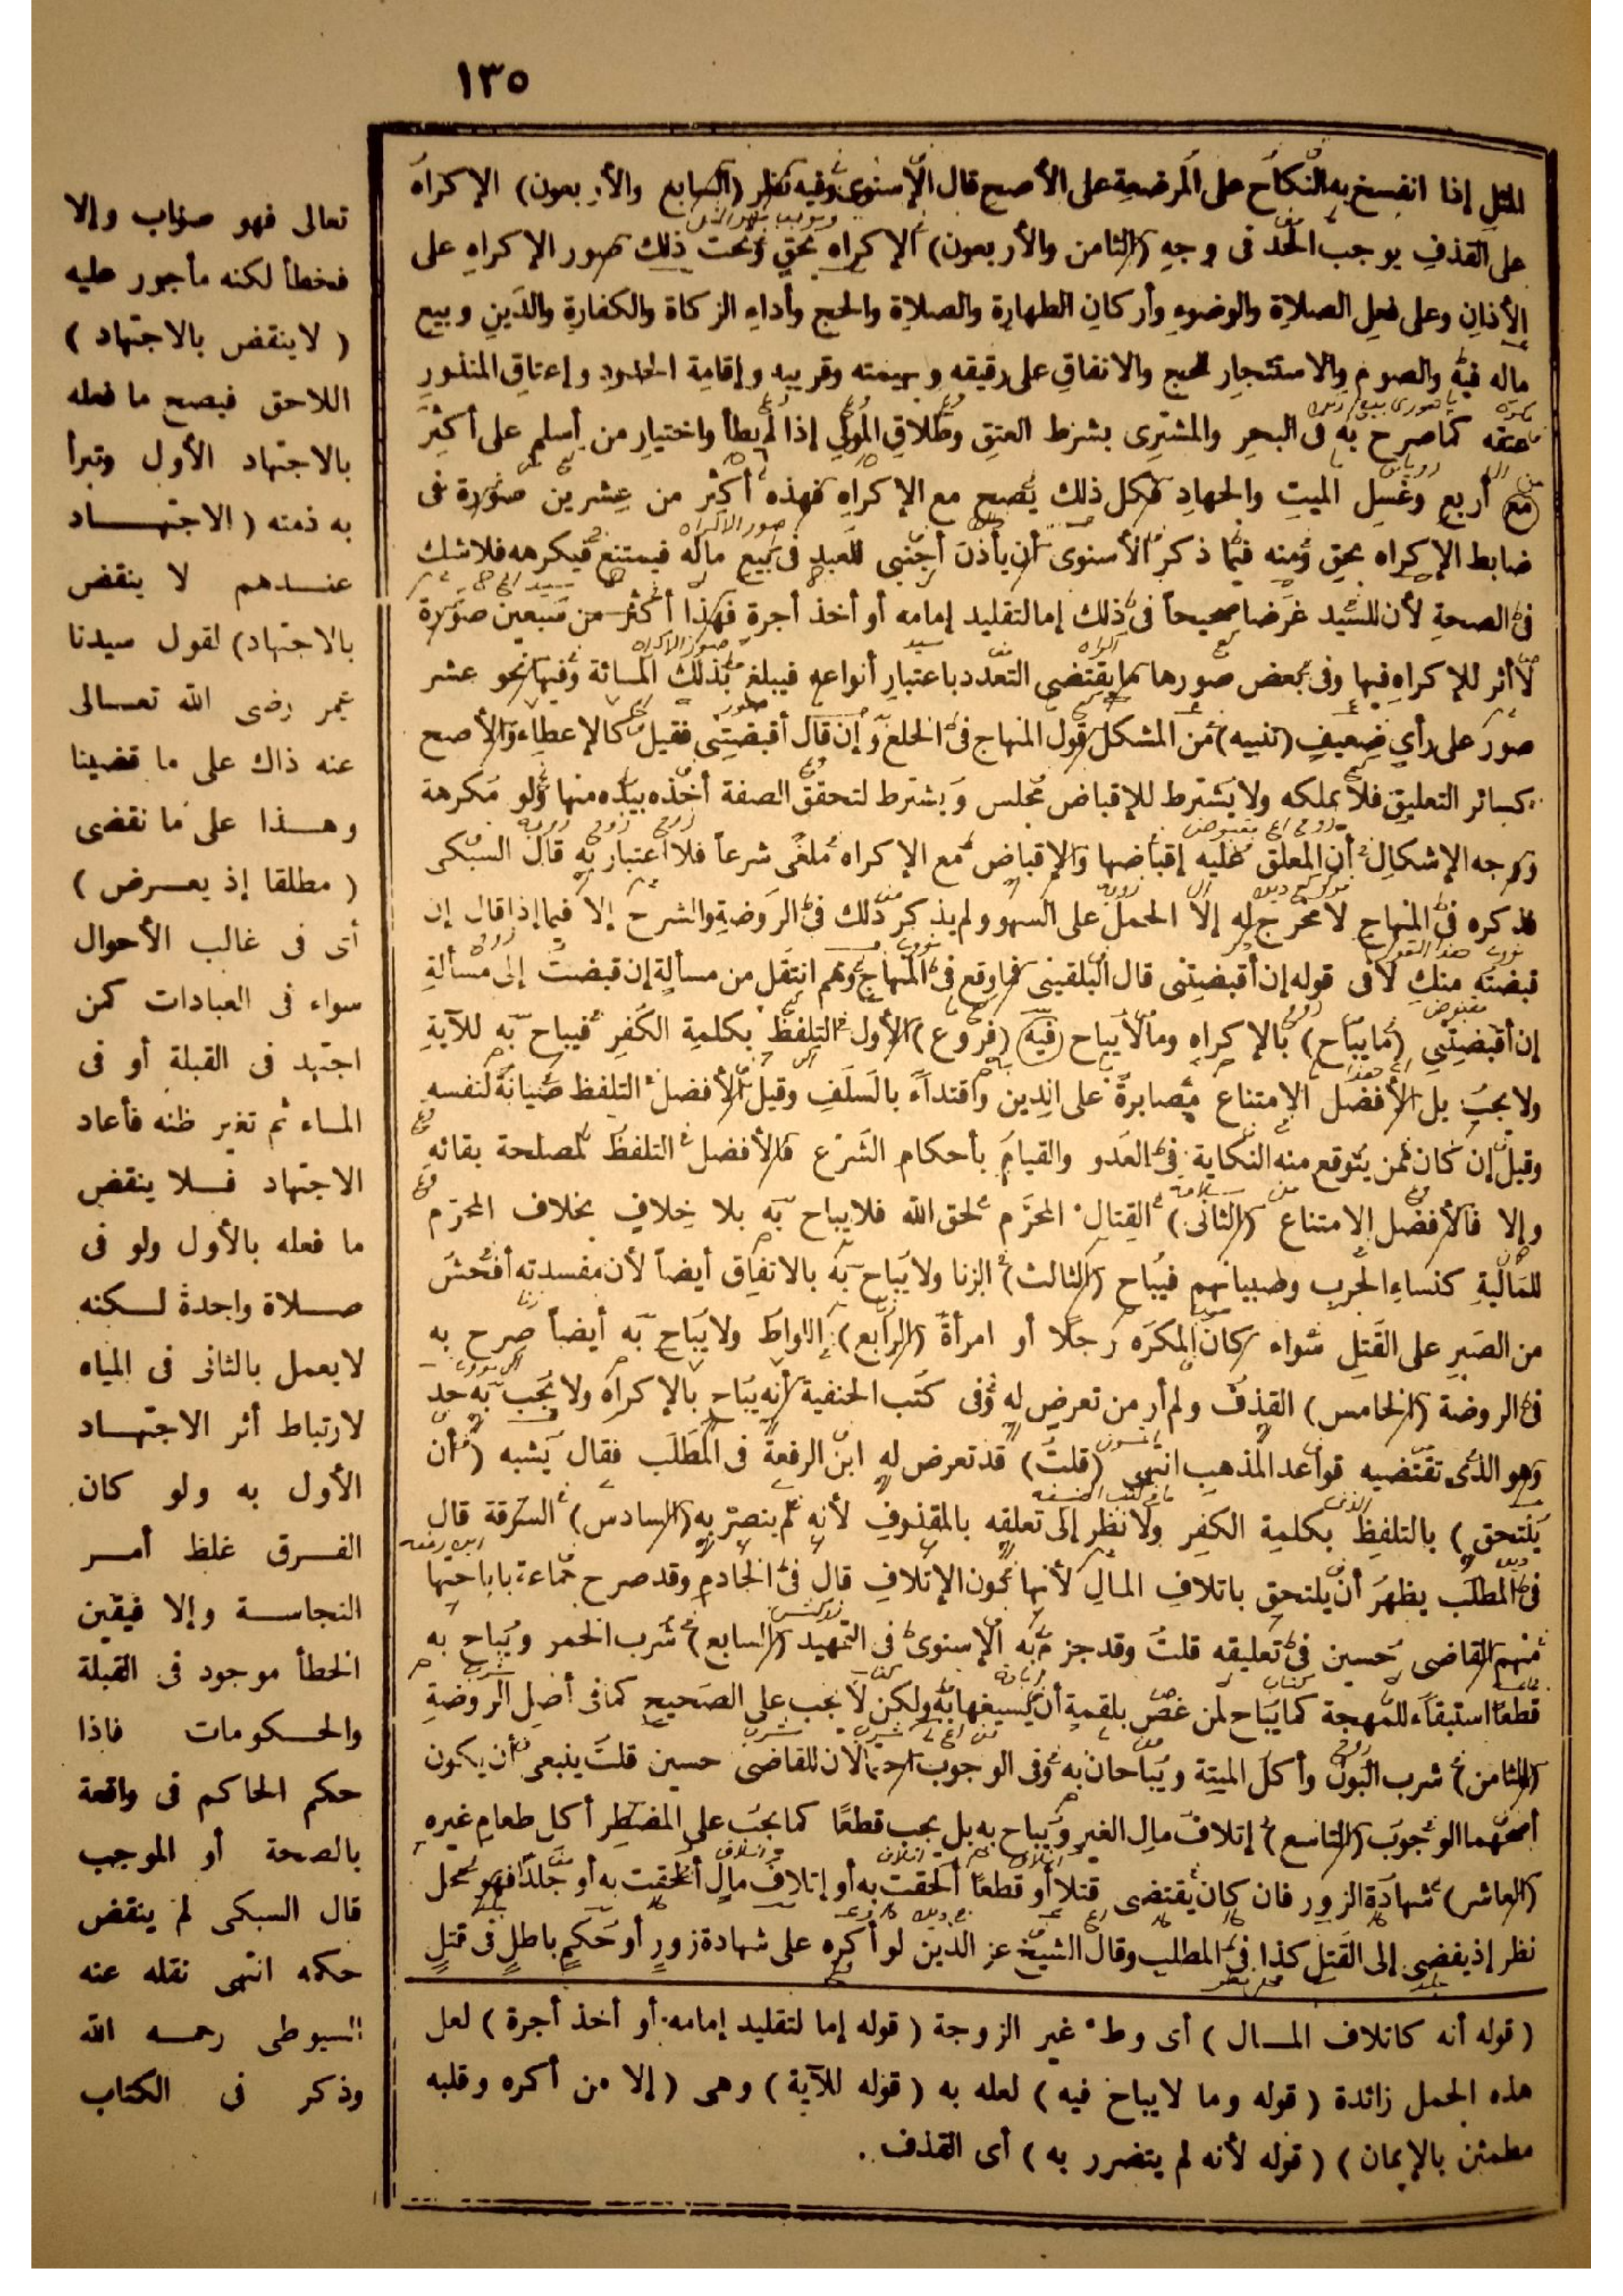 ١٣٥
المثل إذا انفسخ به النكاح على المرضعة على الأصح قال الإسنوى وفيه نظر (السابع والأربعون) الإكراه
على القذف يوجب الحد فى وجه (الثامن والأربعون) الإكراه بحق وتحت ذلك صور الإكراه على
الأذان وعلى فعل الصلاة والوضوء وأركان الطهارة والصلاة والحج وأداء الزكاة والكفارة والدين وبيع
ماله فيه والصوم والاستئجار للحج والانفاق على رقيقه وبهيمته وقريبه وإقامة الحدود وإعتاق المنذور
عتقه كما صرح به فى البحر والمشترى بشرط العتق وطلاق المولى إذا لم يطأ واختيار من أسلم على أكثر
مع أربع وغسل الميت والجهاد فكل ذلك يصح مع الإكراه فهذه أكثر من عشرين صورة فى
ضابط الإكراه بحق ومنه فيما ذكر الأسنوى أن يأذن أجنبى للعبد فى بيع ماله فيمتنع فيكرهه فلا شك
فى الصحة لأن للسيد غرضا صحيحاً فى ذلك إما لتقليد إمامه أو أخذ أجرة فهذا أكثر من سبعين صورة
لا أثر للإكراه فيها وفى بعض صورها ما يقتضى التعدد باعتبار أنواعه فيبلغ بذلك المائة وفيها نحو عشر
صور على رأى ضعيف (تنبيه) من المشكل قول المنهاج فى الخلع وإن قال أقبضتنى فقيل كالإعطاء والأصح
كسائر التعليق فلا يملكه ولا يشترط للإقباض مجلس ويشترط لتحقق الصفة أخذه بيده منها ولو مكرهة
ووجه الإشكال أن المعلق عليه إقباضها والإقباض مع الإكراه ملغى شرعاً فلا اعتبار به قال السبكى
فذكره فى المنهاج لا مخرج له إلا الحمل على السهو ولم يذكر ذلك فى الروضة والشرح إلا فيما إذا قال إن
قبضته منك لا فى قوله إن أقبضتنى قال البلقينى فما وقع فى المنهاج وهم انتقل من مسألة إن قبضت إلى مسألة
إن أقبضتنى (ما يباح) بالإكراه وما لا يباح (فيه) (فروع) الأول التلفظ بكلمة الكفر فيباح به للآية
ولا يجب بل الأفضل الامتناع مصابرة على الدين واقتداءً بالسلف وقيل الأفضل التلفظ صيانة لنفسه
وقيل إن كان ممن يتوقع منه النكاية فى العدو والقيام بأحكام الشرع فالأفضل التلفظ لمصلحة بقائه
وإلا فالأفضل الامتناع (الثانى) القتال المحرم لحق الله فلا يباح به بلا خلاف بخلاف المحرم
للمالية كنساء الحرب وصبيانهم فيباح (الثالث) الزنا ولا يباح به بالاتفاق أيضاً لأن مفسدته أفحش
من الصبر على القتل سواء كان المكره رجلا أو امرأة (الرابع) اللواط ولا يباح به أيضاً صرح به
فى الروضة (الخامس) القذف ولم أر من تعرض له وفى كتب الحنفية أنه يباح بالإكراه ولا يجب به حد
وهو الذى تقتضيه قواعد المذهب انتهى (قلت) قد تعرض له ابن الرفعة فى المطلب فقال يشبه (أن
يلتحق) بالتلفظ بكلمة الكفر ولا نظر إلى تعلقه بالمقذوف لأنه لم يتضرر به (السادس) السرقة قال
فى المطلب يظهر أن يلتحق باتلاف المال لأنها دون الإتلاف قال فى الخادم وقد صرح جماعة باباحتها
منهم القاضى حسين فى تعليقه قلت وقد جزم به الإسنوى فى التمهيد (السابع) شرب الخمر ويباح به
قطعا استبقاء للمهجة كما يباح لمن غص بلقمة أن يسيغها به ولكن لا يجب على الصحيح كما فى أصل الروضة
(الثامن) شرب البول وأكل الميتة ويباحان به وفى الوجوب احتمالان للقاضى حسين قلت ينبغى أن يكون
أصحهما الوجوب (التاسع) إتلاف مال الغير ويباح به بل يجب قطعا كما يجب على المضطر أكل طعام غيره
(العاشر) شهادة الزور فان كان يقتضى قتلا أو قطعا ألحقت به أو إتلاف مال ألحقت به أو جلدا فهو محل
نظر إذ يفضى إلى القتل كذا فى المطلب وقال الشيخ عز الدين لو أكره على شهادة زور أو حكم باطل فى قتل
(قوله أنه كاتلاف المال) أى وطء غير الزوجة (قوله إما لتقليد إمامه أو أخذ أجرة) لعل
هذه الجمل زائدة (قوله وما لا يباح فيه) لعله به (قوله للآية) وهى (إلا من أكره وقلبه
مطمئن بالإيمان) (قوله لأنه لم يتضرر به) أى القذف.
تعالى فهو صواب وإلا
فخطأ لكنه مأجور عليه
(لا ينقض بالاجتهاد)
اللاحق فيصح ما فعله
بالاجتهاد الأول وتبرأ
به ذمته (الاجتهاد
عندهم لا ينقض
بالاجتهاد) لقول سيدنا
عمر رضى الله تعالى
عنه ذاك على ما قضينا
وهذا على ما نقضى
(مطلقا إذ يعرض)
أى فى غالب الأحوال
سواء فى العبادات كمن
اجتهد فى القبلة أو فى
الماء ثم تغير ظنه فأعاد
الاجتهاد فلا ينقض
ما فعله بالأول ولو فى
صلاة واحدة لكنه
لا يعمل بالثانى فى المياه
لارتباط أثر الاجتهاد
الأول به ولو كان
الفرق غلظ أمر
النجاسة وإلا فيقين
الخطأ موجود فى القبلة
والحكومات فاذا
حكم الحاكم فى واقعة
بالصحة أو الموجب
قال السبكى لم ينقض
حكمه انتهى نقله عنه
السيوطى رحمه الله
وذكر فى الكتاب